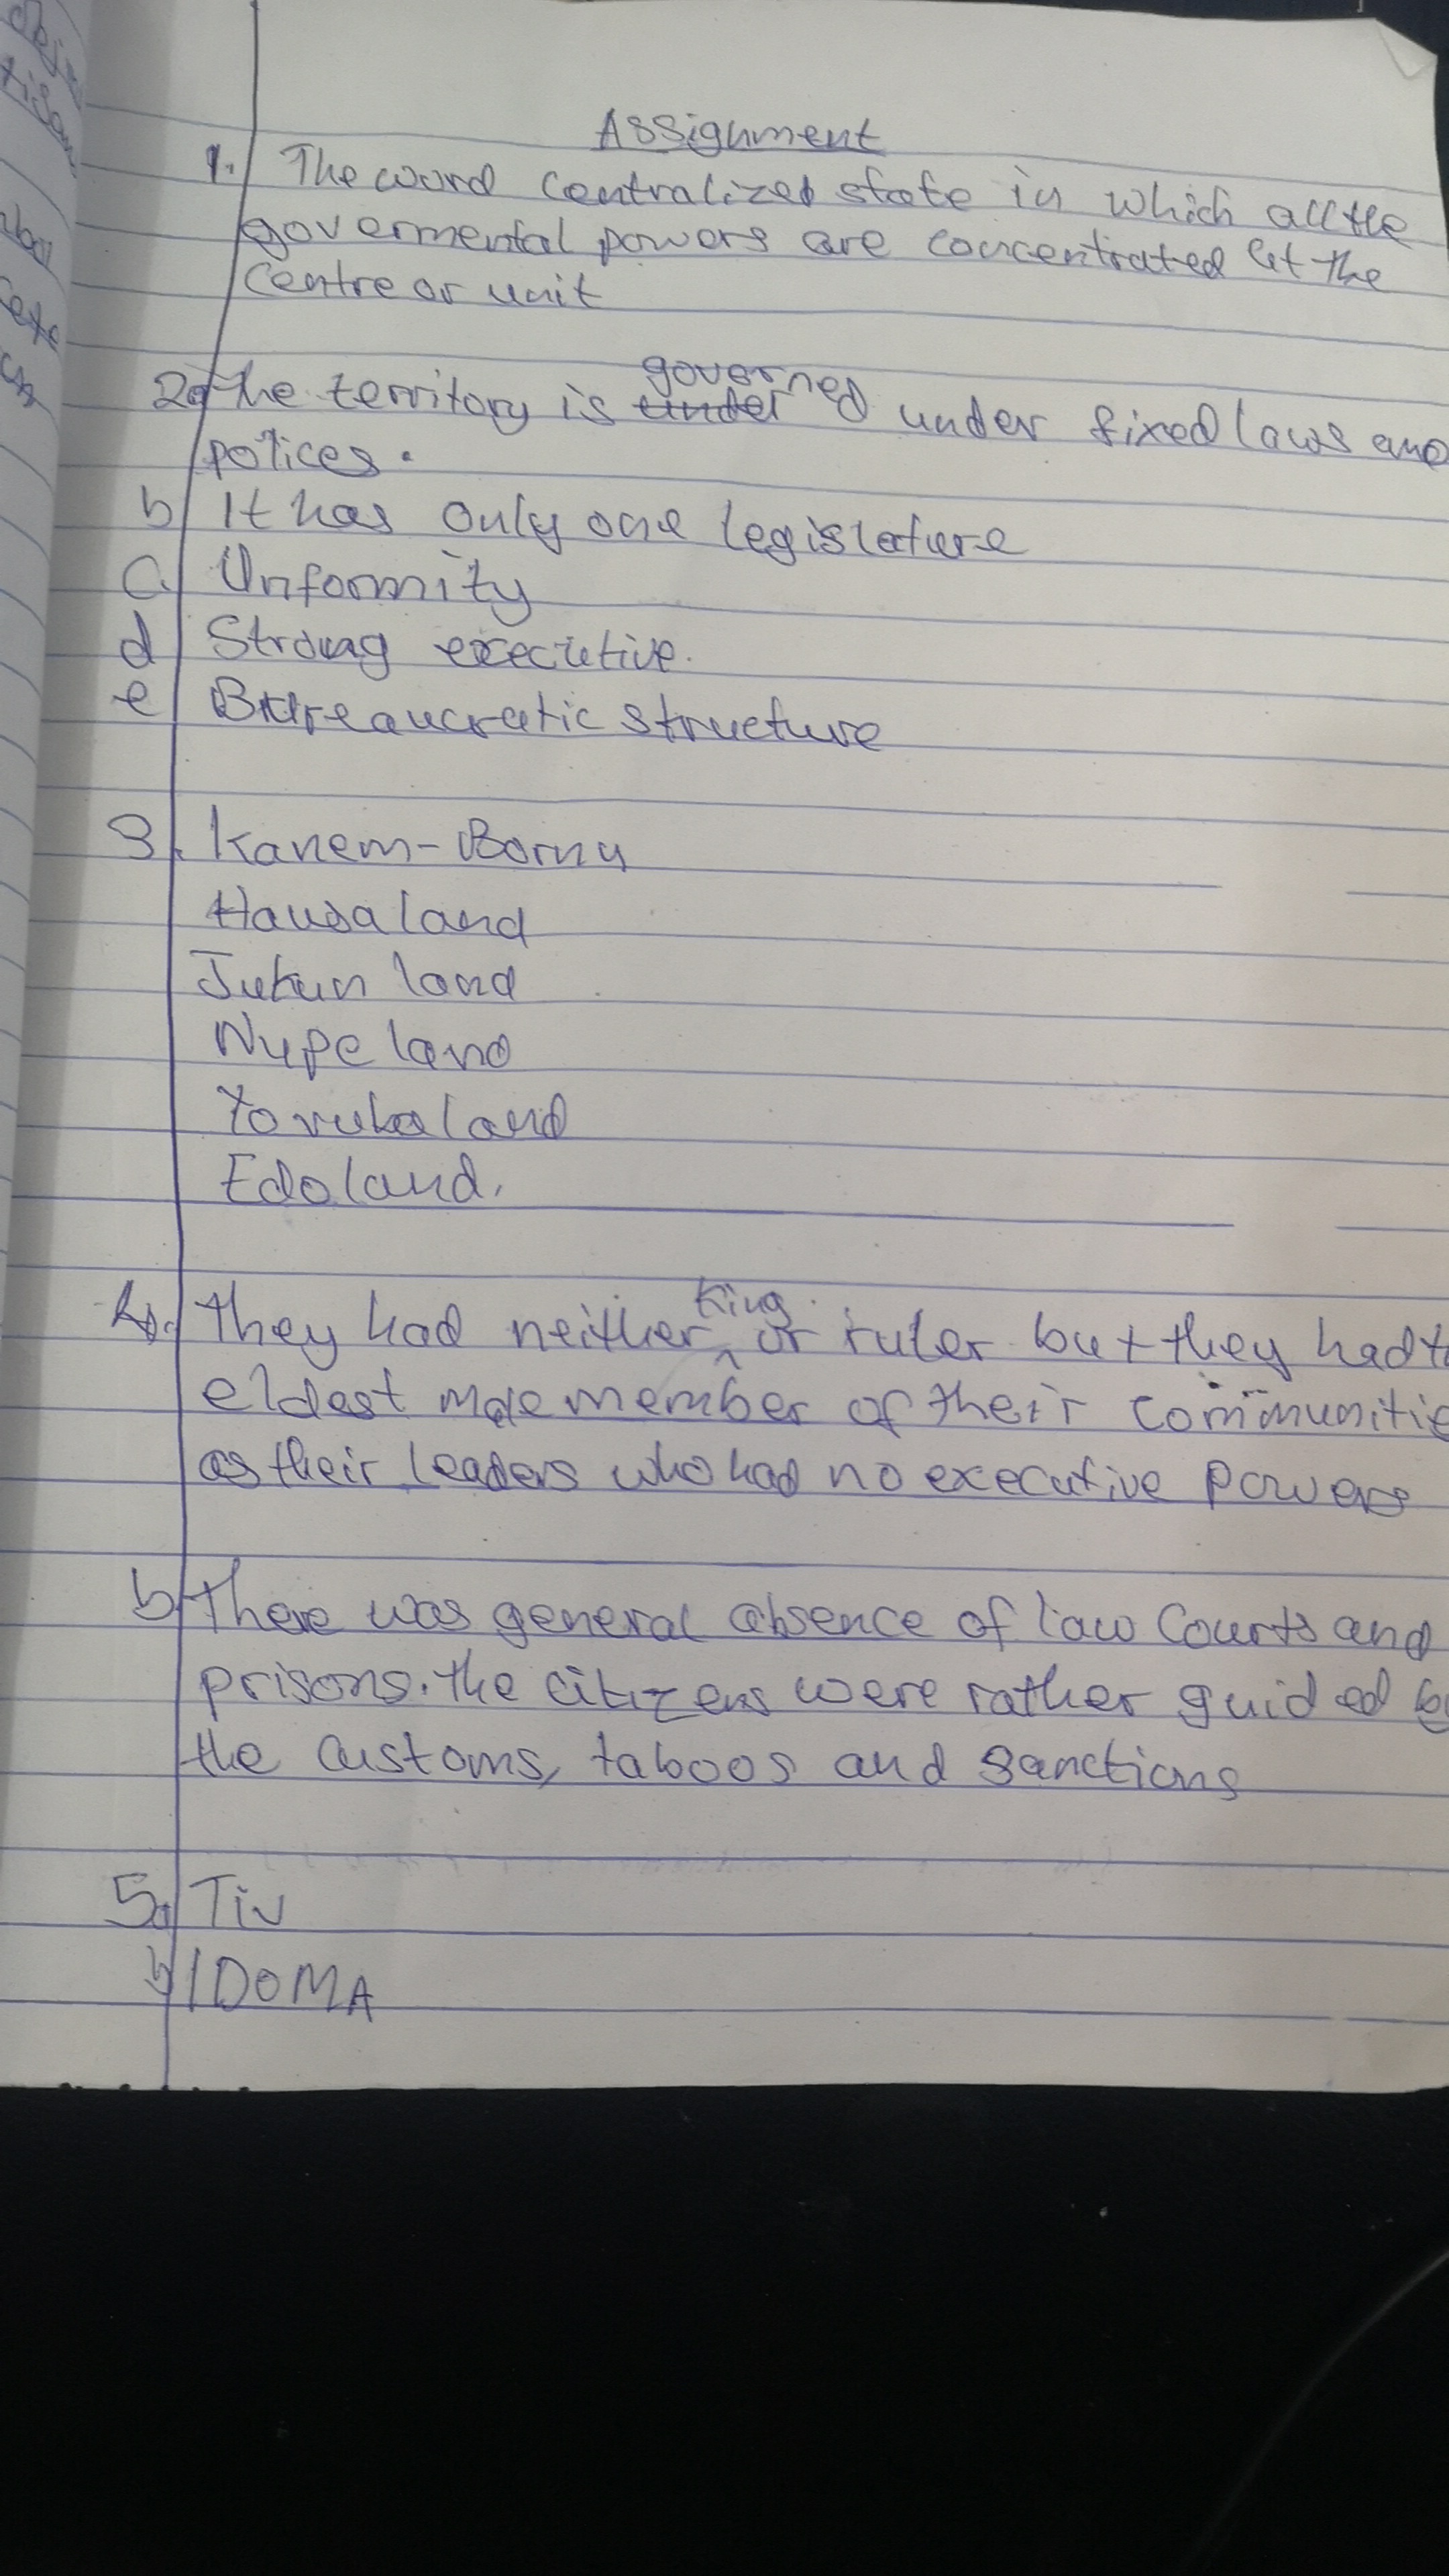 Assignment
1. The word centralized state in which all the
govermental powers are concentrated at the
Centre or unit
2a The territory is under governed under fixed laws and
polices.
b It has only one legislature
C. Unformity
d Strong executive.
e Butreaucratic structure
3. Kanem-Borny
Hausa land
Jukun land
Nupe land
Yoruba land
Edo land.
4. They had neither king or ruler but they had
eldest male member of their communitie
as their leaders who had no executive powers
b There was general absence of law Courts and
prisons. The citizens were rather guided
the customs, taboos and sanctions
5a Tiv
b IDOMA